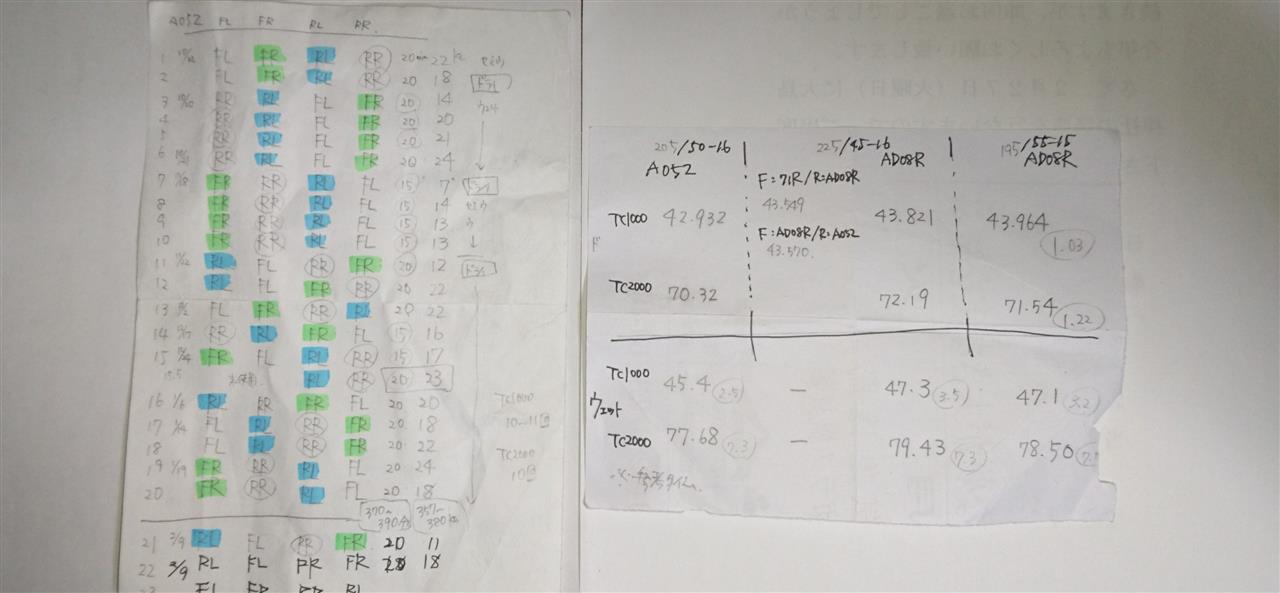 A052 FL FR RL RR
1 FL FR RL RR 20min 22
2 FL FR RL RR 20 18 ドライ
3 RR RL FL FR 20 14
4 RR RL FL FR 20 20
5 RR RL FL FR 20 21
6 RR RL FL FR 20 24
7 FR RR RL FL 15 7 ドライ
8 FR RR RL FL 15 14
9 FR RR RL FL 15 13
10 FR RR RL FL 15 13
11 RL FL RR FR 20 12 ドライ
12 RL FL FR RR 20 22
13 FL FR RR RL 20 22
14 RR RL FR FL 15 16
15 FR FL RL RR 15 17
15.5 未使用 RL RR 20 23
16 1/6 RL RR FR FL 20 20 TC1000
17 1/14 FL RL RR FR 20 18 10~11回
18 FL RL RR FR 20 22 TC2000
19 1/19 FR RR RL FL 20 24 10回
20 FR RR RL FL 20 18
370~ 357~
390分 380
21 3/9 RL FL RR FR 20 11
22 3/9 RL FL RR FR 18
FL FR RR RL
205/50-16 225/45-16 195/55-15
A052 AD08R AD08R
F:71R/R:AD08R
43.549
TC1000 42.932 43.821 43.964
F:AD08R/R:A052
43.570 1.03
TC2000 70.32 72.19 71.54
1.22
TC1000 45.4 2.5 - 47.3 3.5 47.1 3.2
ウェット
TC2000 77.68 7.3 - 79.43 7.3 78.50
※…参考タイム